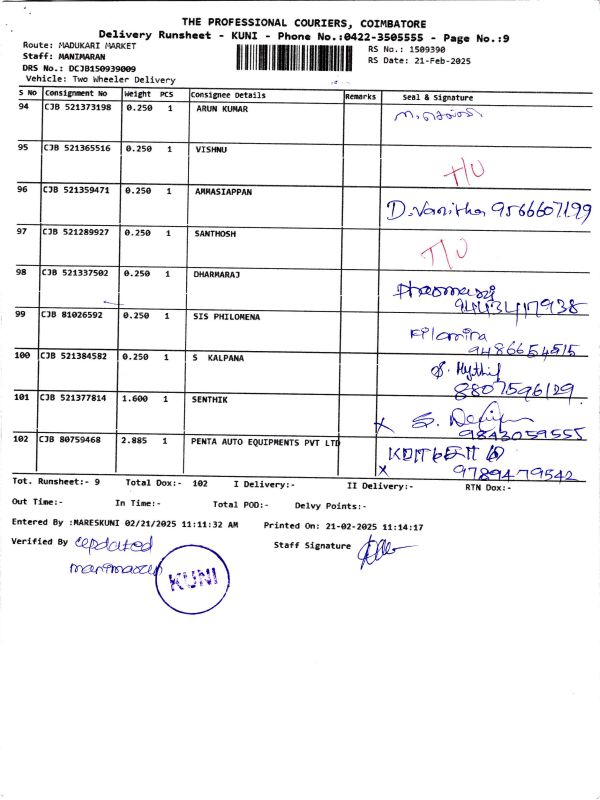 THE PROFESSIONAL COURIERS, COIMBATORE
Delivery Runsheet - KUNI - Phone No.:0422-3505555 - Page No.:9
Route: MADUKARI MARKET
RS No.: 1509390
Staff: MANIMARAN
RS Date: 21-Feb-2025
DRS No.: DCJB150939009
Vehicle: Two Wheeler Delivery
S No Consignment No Weight PCS Consignee Details Remarks Seal & Signature
94 CJB 521373198 0.250 1 ARUN KUMAR
95 CJB 521365516 0.250 1 VISHNU T/U
96 CJB 521359471 0.250 1 AMMASIAPPAN D. Vanitha 9566607199
97 CJB 521289927 0.250 1 SANTHOSH T/U
98 CJB 521337502 0.250 1 DHARMARAJ
99 CJB 81026592 0.250 1 SIS PHILOMENA 9486654515
100 CJB 521384582 0.250 1 S KALPANA 8807596129
101 CJB 521377814 1.600 1 SENTHIK X 9843059555
102 CJB 80759468 2.885 1 PENTA AUTO EQUIPMENTS PVT LTD X 9789479542
Tot. Runsheet:- 9 Total Dox:- 102 I Delivery:- II Delivery:- RTN Dox:-
Out Time:- In Time:- Total POD:- Delvy Points:-
Entered By :MARESKUNI 02/21/2025 11:11:32 AM Printed On: 21-02-2025 11:14:17
Verified By updated Staff Signature
manimaran
KUNI